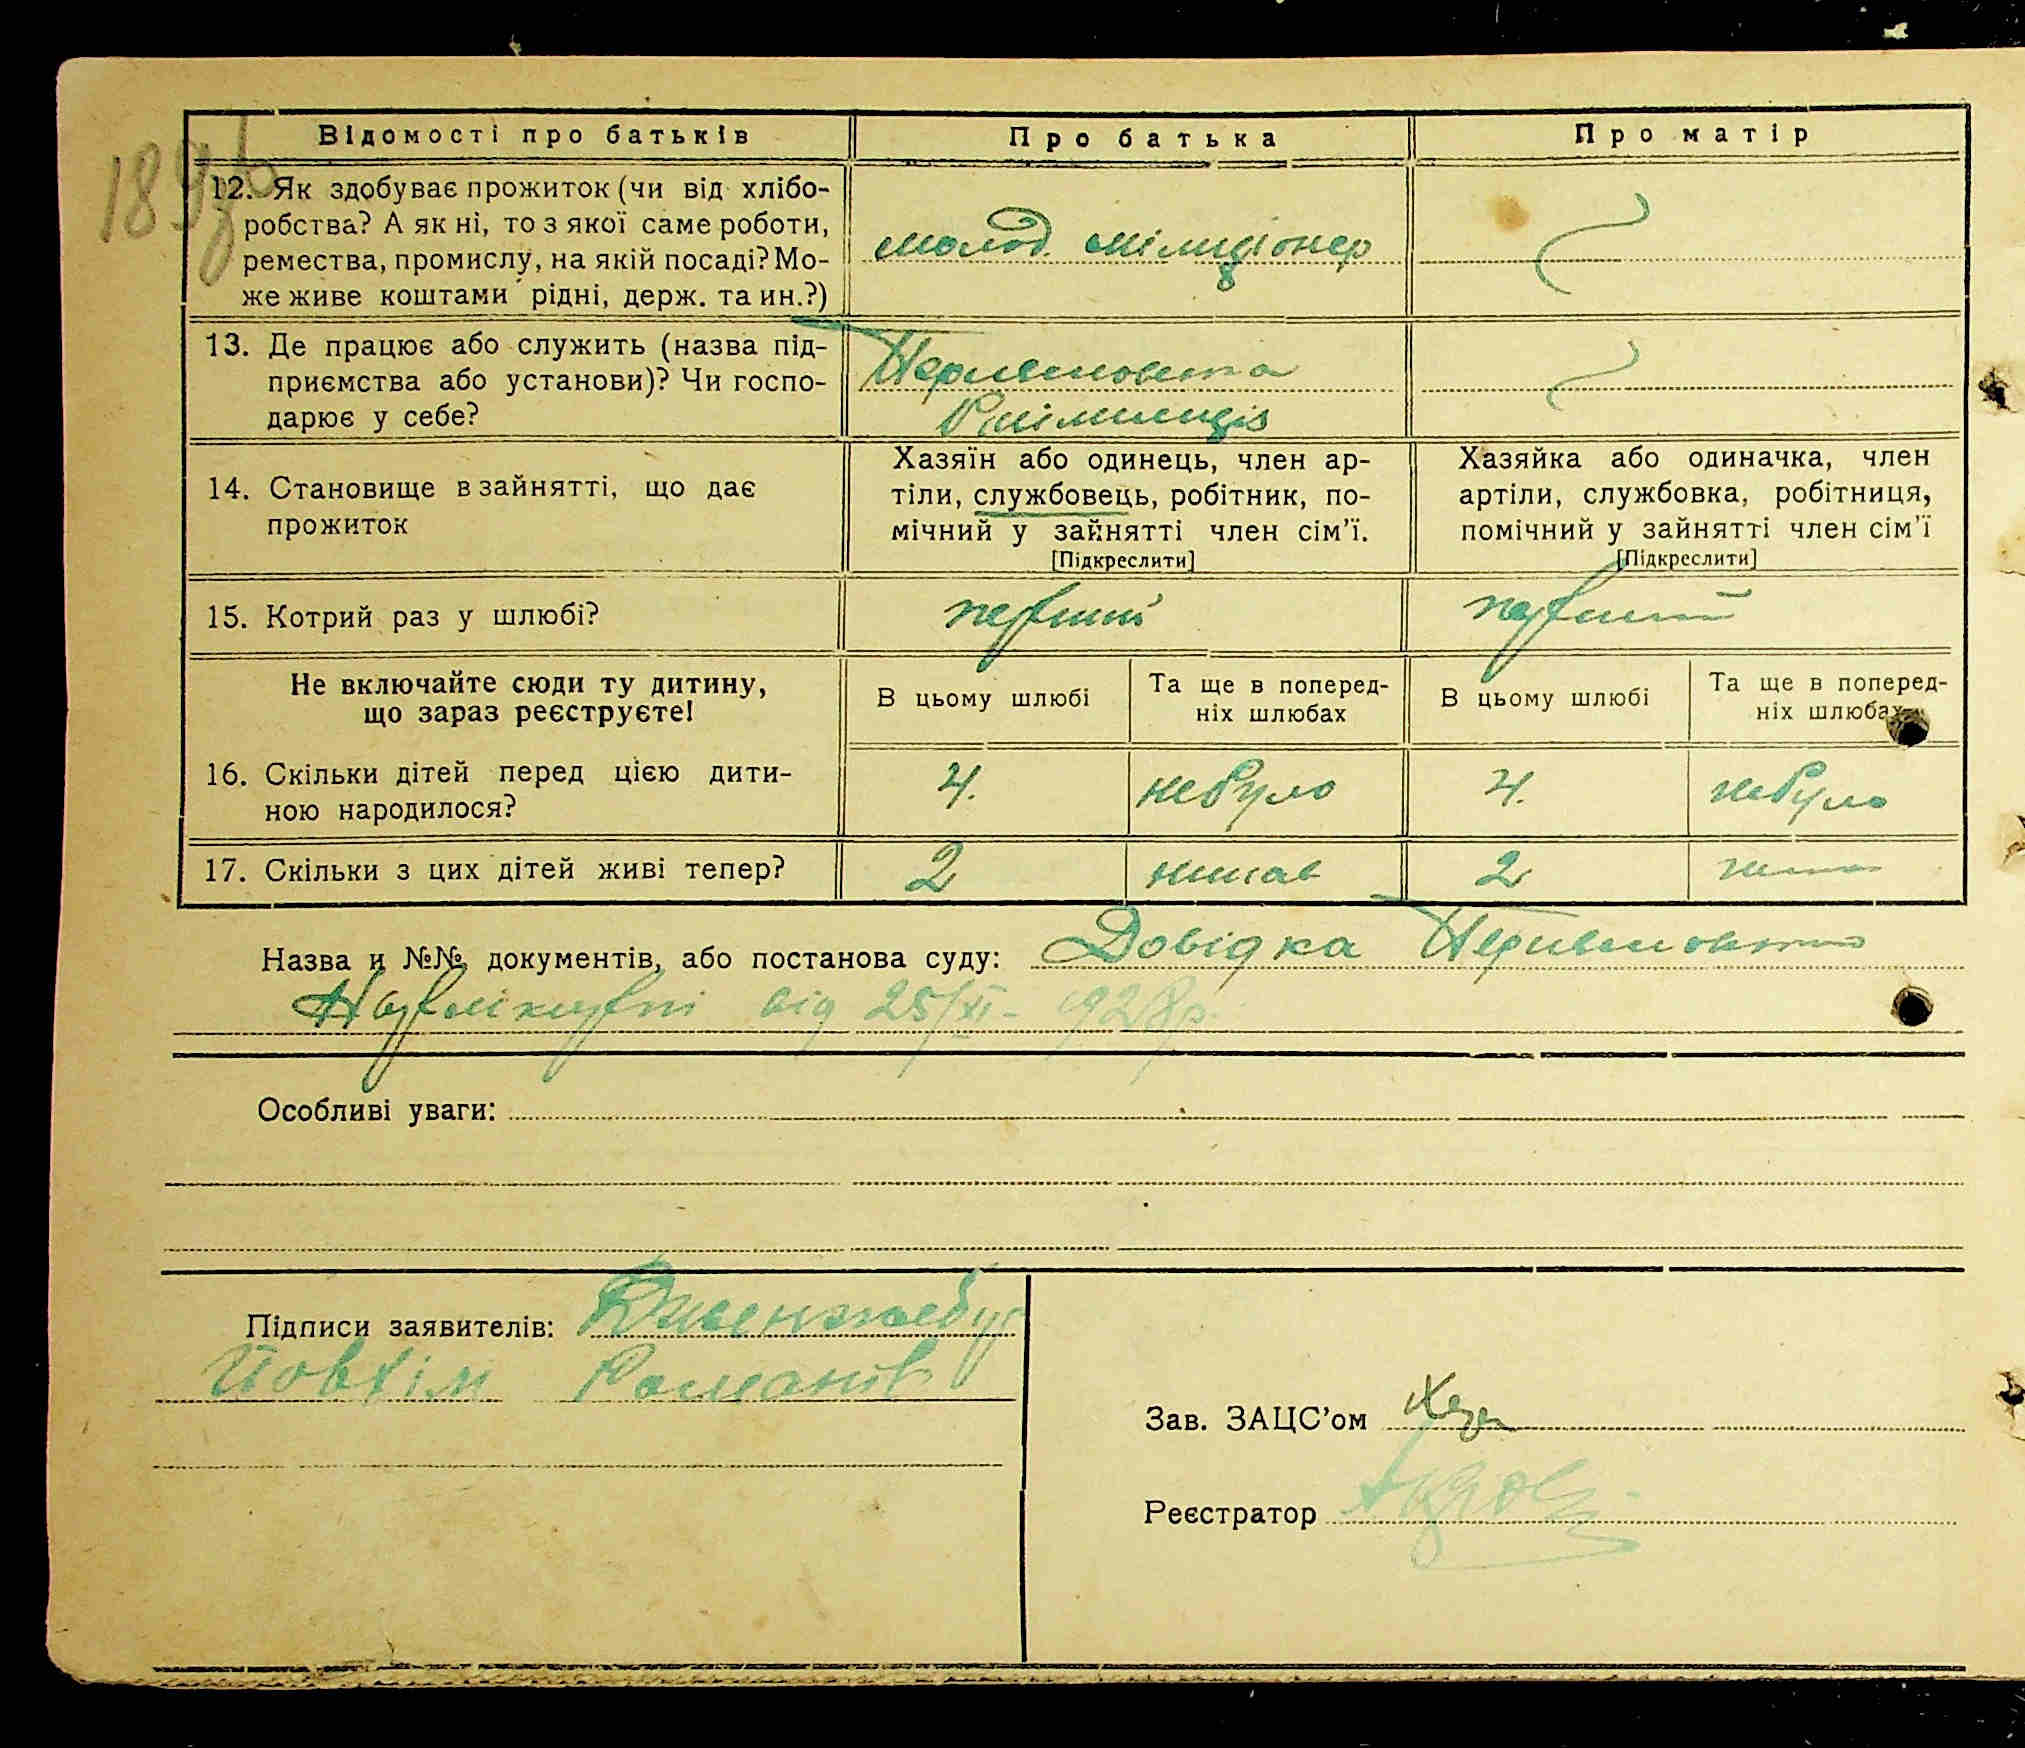 Відомості про батьків
Про батька
Про матір
12. Як здобуває прожиток (чи від хлібо-
робства? А як ні, то з якої саме роботи,
ремества, промислу, на якій посаді? Мо-
же живе коштами рідні, держ. та ин.?)
молод. міліціонер
13. Де працює або служить (назва під-
приємства або установи)? Чи госпо-
дарює у себе?
Рміліція
14. Становище в зайнятті, що дає
прожиток
Хазяїн або одинець, член ар-
тіли, службовець, робітник, по-
мічний у зайнятті член сім'ї.
[Підкреслити]
Хазяйка або одиначка, член
артіли, службовка, робітниця,
помічний у зайнятті член сім'ї
[Підкреслити]
15. Котрий раз у шлюбі?
первший
первший
Не включайте сюди ту дитину,
що зараз реєструєте!
В цьому шлюбі
Та ще в поперед-
ніх шлюбах
В цьому шлюбі
Та ще в поперед-
ніх шлюбах
16. Скільки дітей перед цією дити-
ною народилося?
4.
небуло
4.
небуло
17. Скільки з цих дітей живі тепер?
2
2
Назва и №№ документів, або постанова суду: Довідка
від 25/XI - 1928р.
Особливі уваги:
Підписи заявителів:
Йовхім Романів
Зав. ЗАЦС'ом
Реєстратор